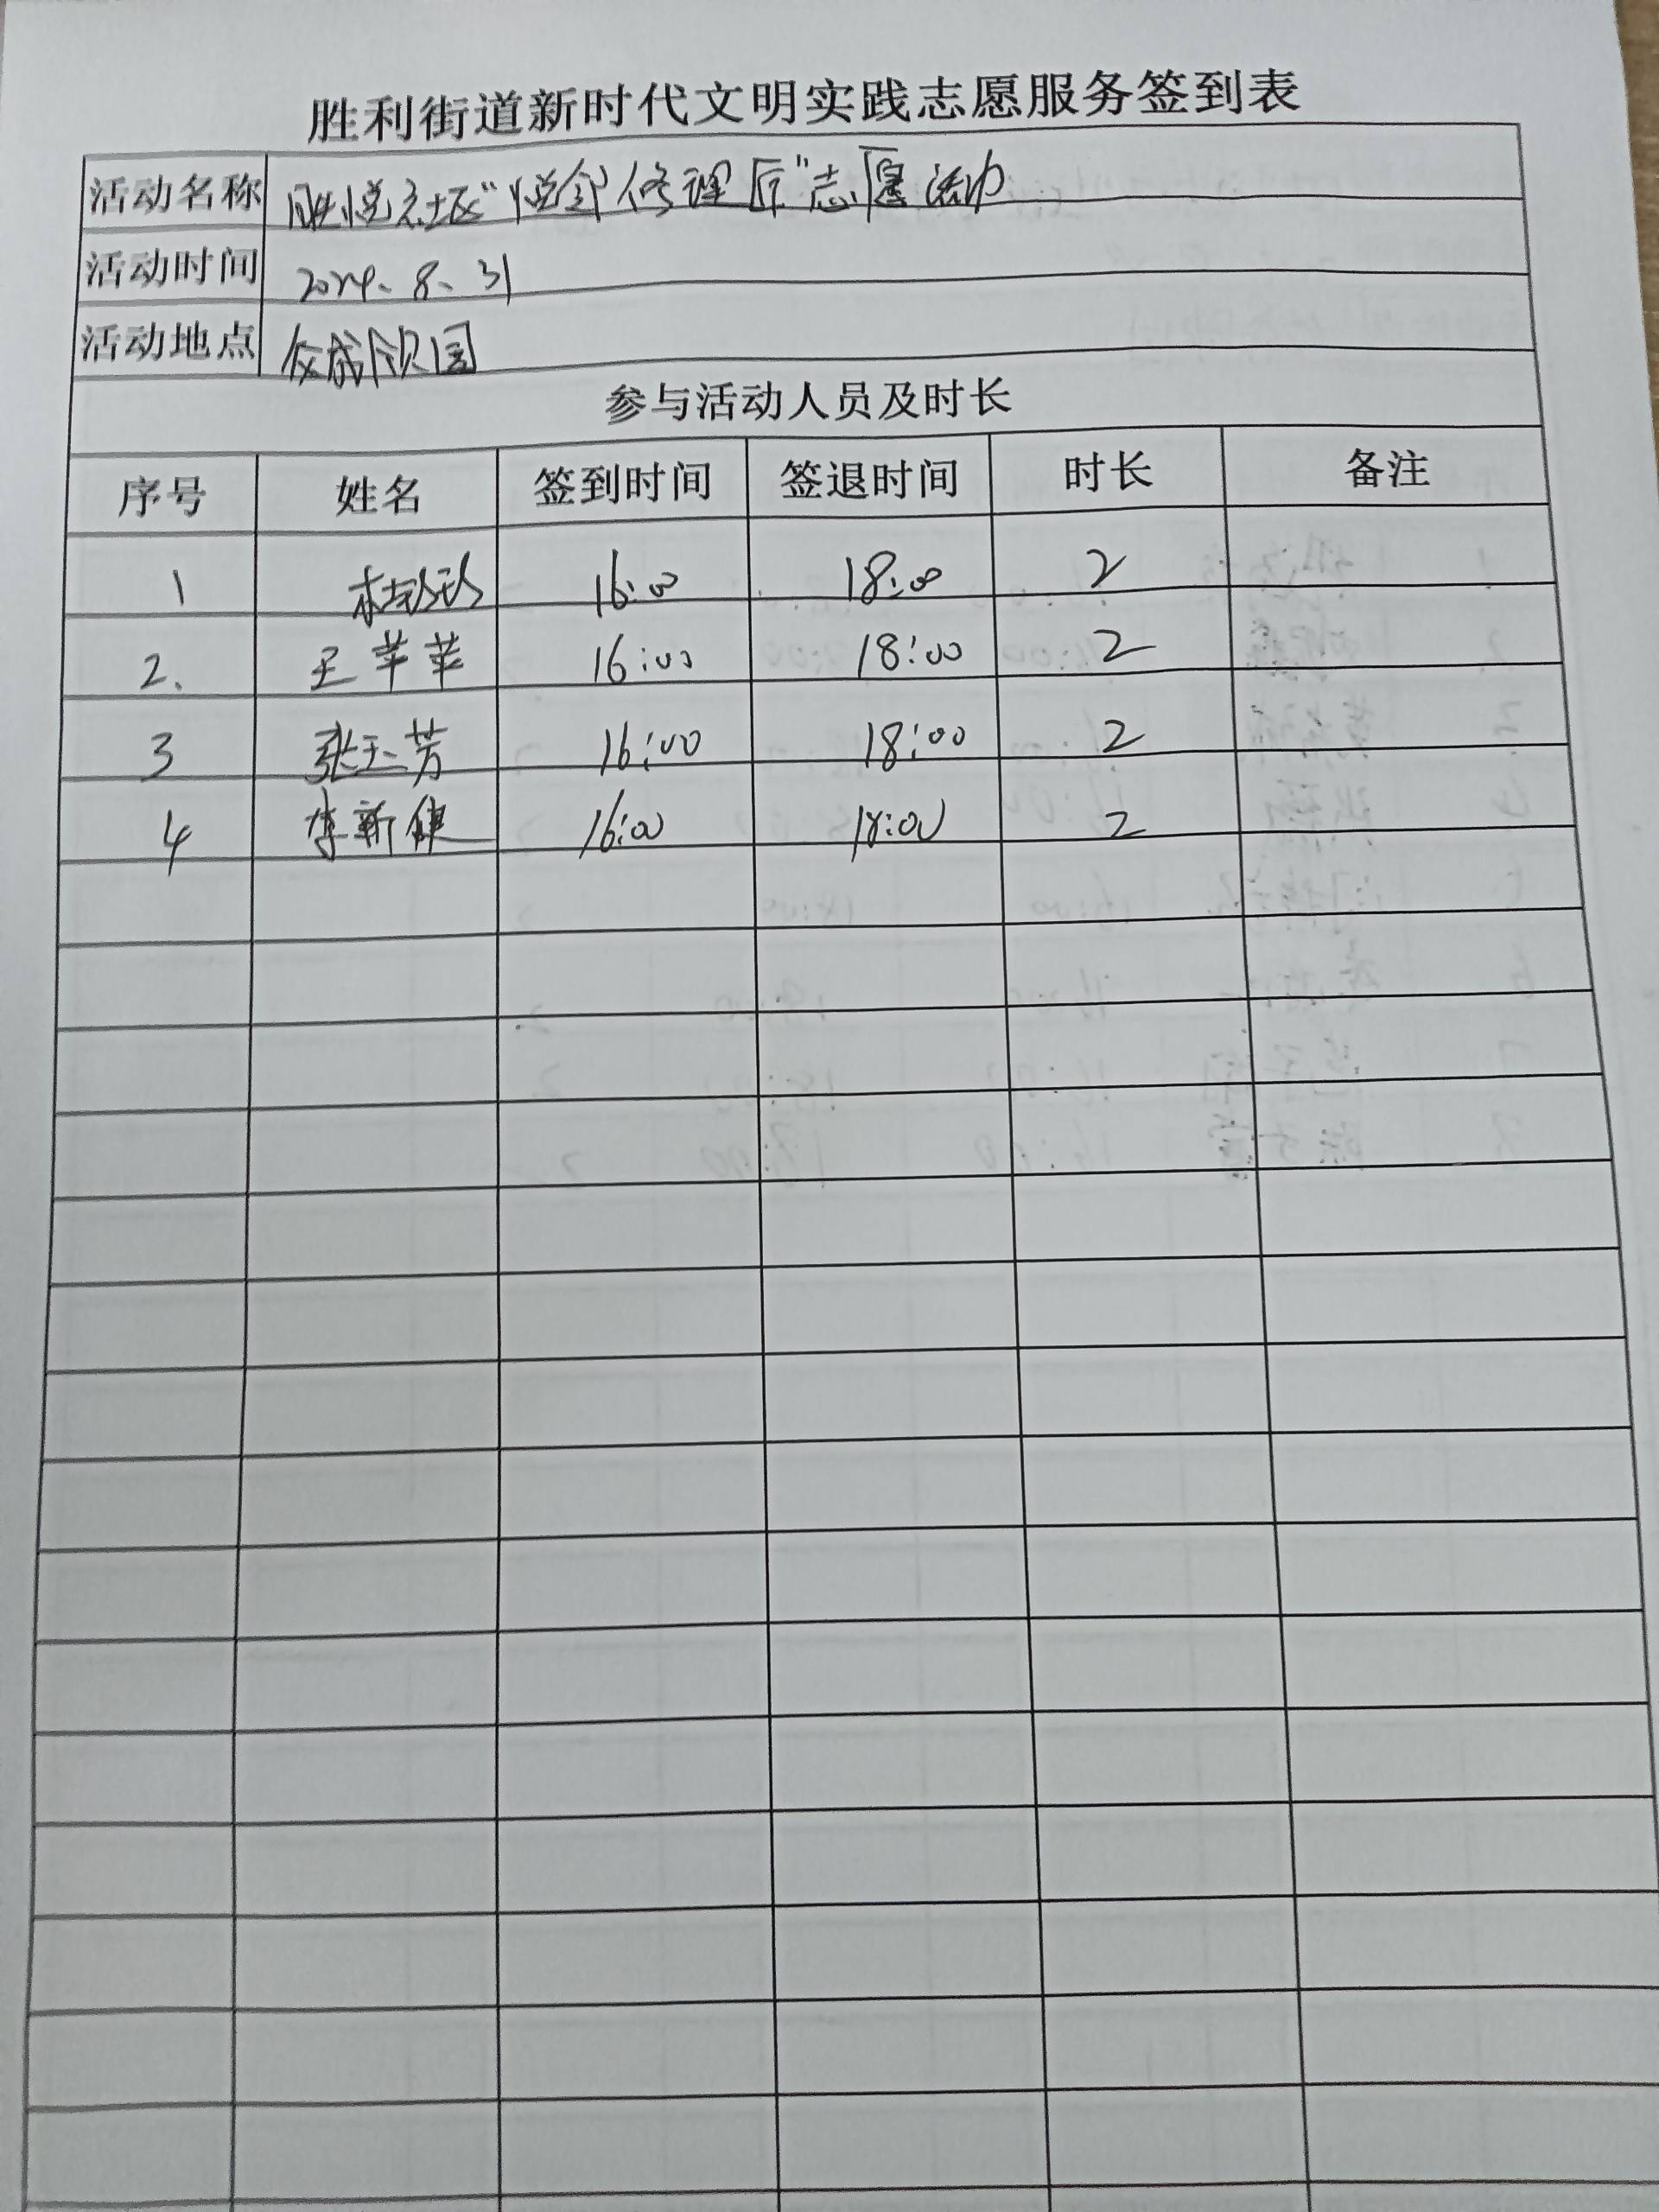 胜利街道新时代文明实践志愿服务签到表
活动名称 胜悦社区“悦邻修理匠”志愿活动
活动时间 2024、8、31
活动地点 友成颐园
参与活动人员及时长
序号 姓名 签到时间 签退时间 时长 备注
1 16:00 18:00 2
2、 王苹苹 16:00 18:00 2
3 张玉芳 16:00 18:00 2
4 李新健 16:00 18:00 2